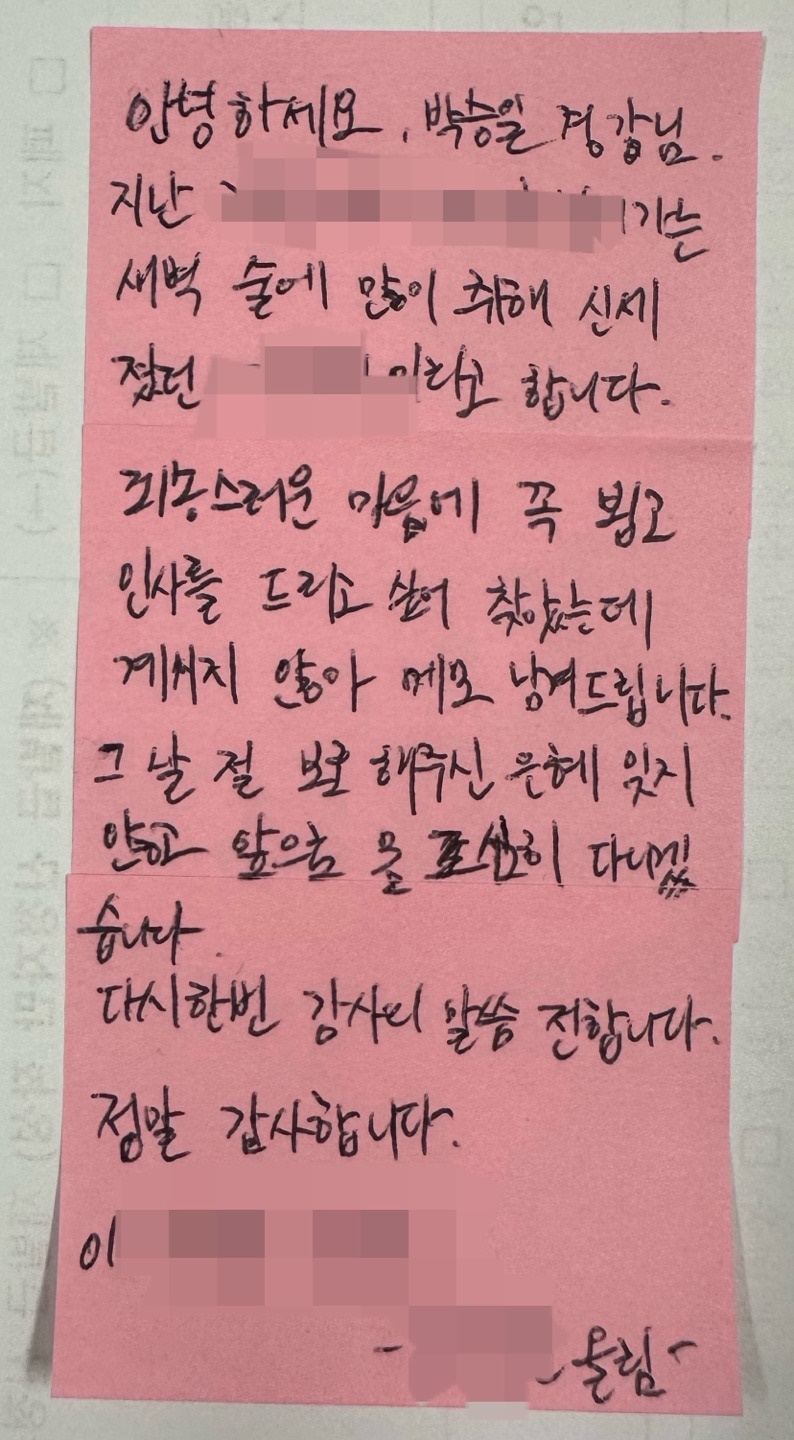 안녕하세요. 박승일 경감님.
지난 가는
새벽 술에 많이 취해 신세
졌던 이라고 합니다.
죄송스러운 마음에 꼭 뵙고
인사를 드리고 싶어 찾았는데
계씨지 않아 메모 남겨드립니다.
그 날 절 보호 해주신 은혜 잊지
안고 앞으론 몸 조심히 다니겠
습니다.
다시한번 감사의 말씀 전합니다.
정말 감사합니다.
이
- 올림-